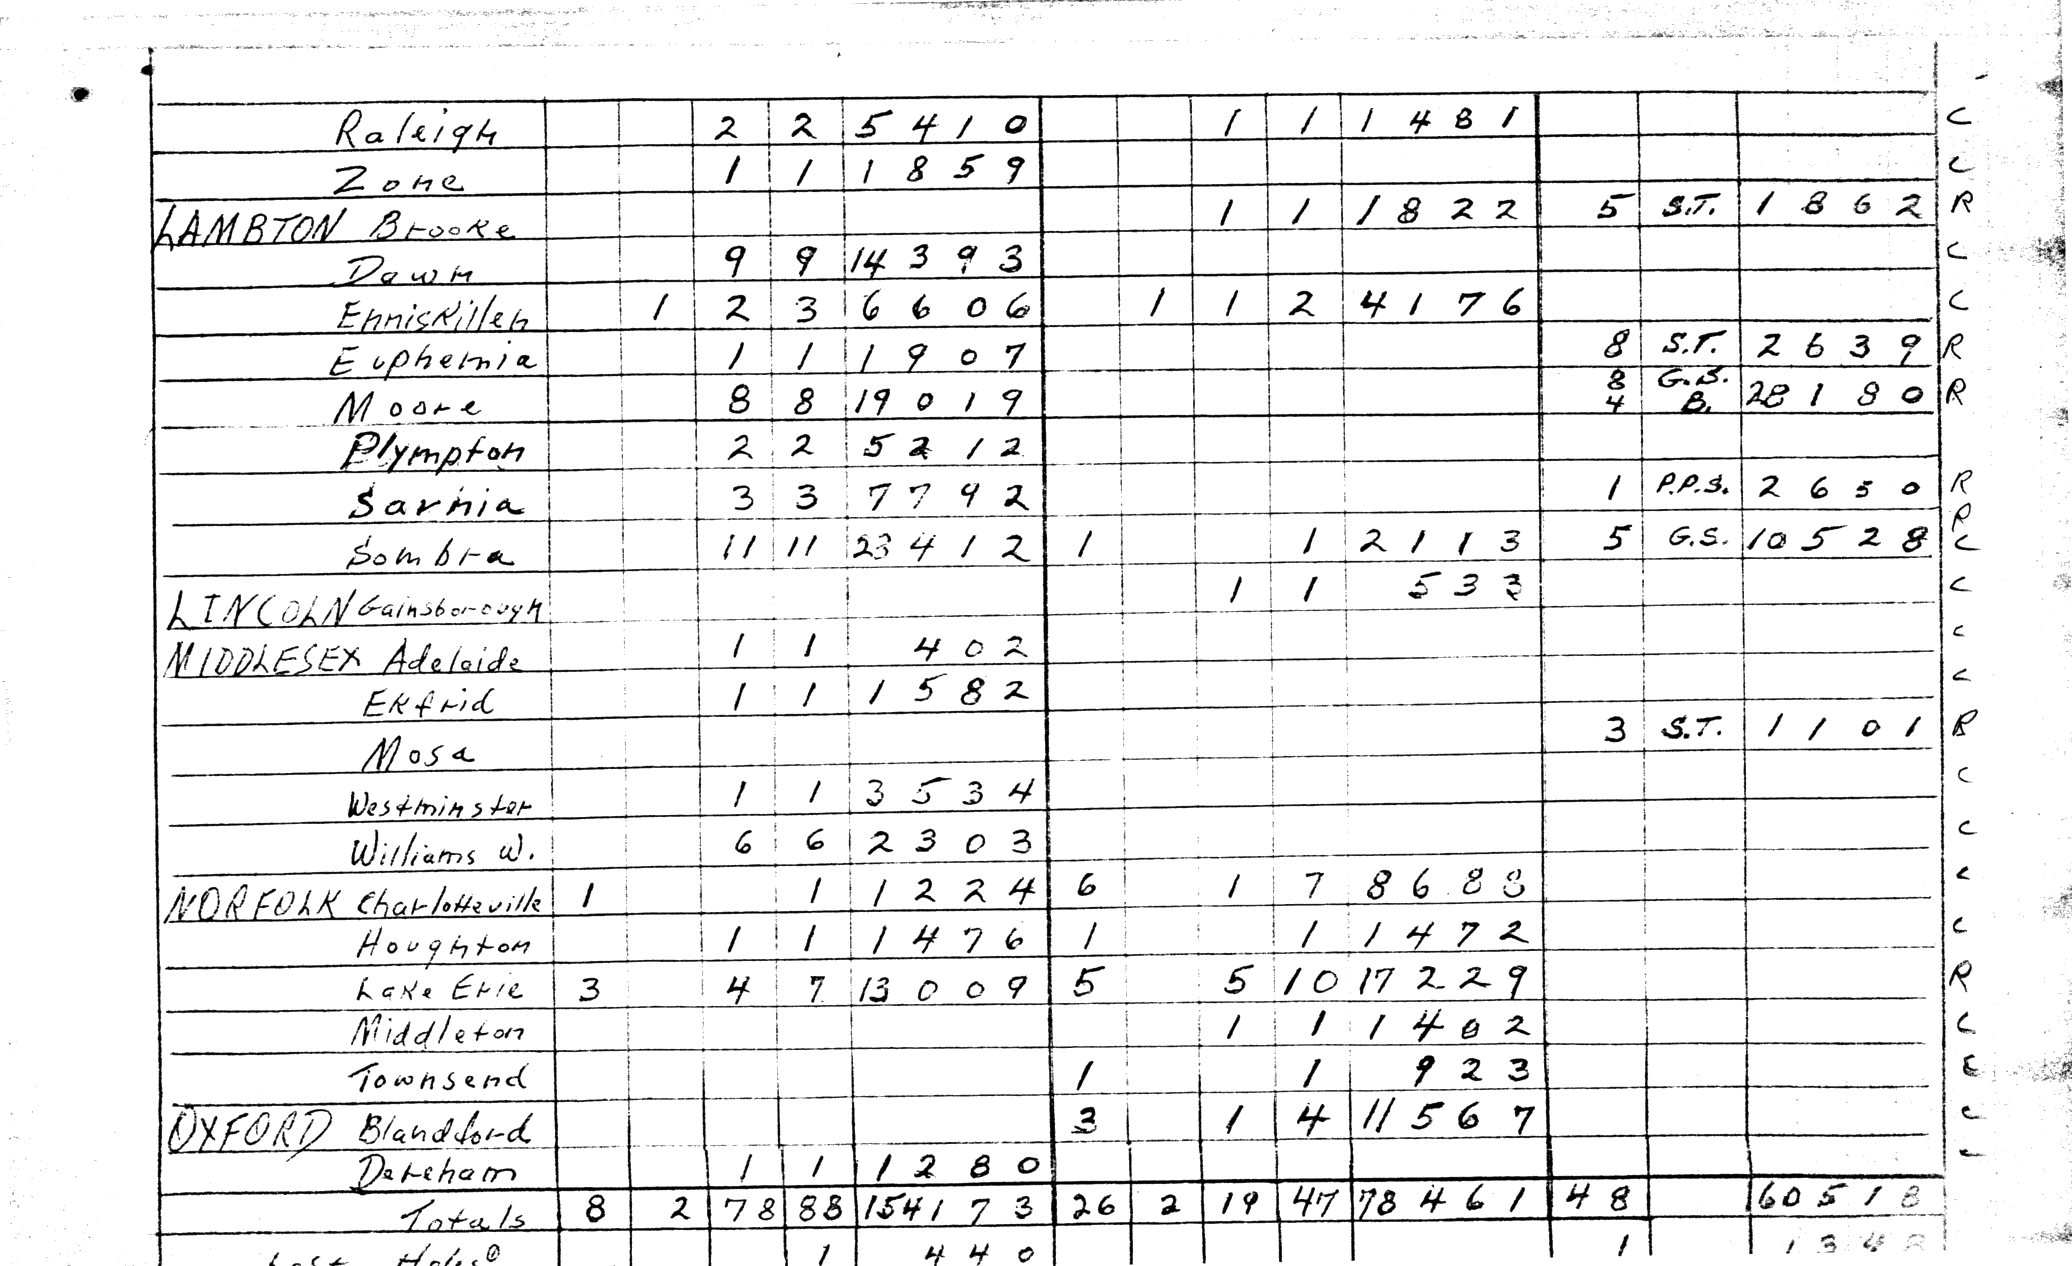 Raleigh 2 2 5410 1 1 1481 C
Zone 1 1 1859 C
LAMBTON Brooke 1 1 1822 5 S.T. 1862 R
Dawn 9 9 14393 C
Enniskillen 1 2 3 6606 1 1 2 4176 C
Euphemia 1 1 1907 8 S.T. 2639 R
Moore 8 8 19019 8 G.S. 4 B. 28180 R
Plympton 2 2 5212
Sarnia 3 3 7792 1 P.P.S. 2650 R
Sombra 11 11 23412 1 1 2113 5 G.S. 10528 R C
LINCOLN Gainsborough 1 1 533 C
MIDDLESEX Adelaide 1 1 402 C
Ekfrid 1 1 1582 C
Mosa 3 S.T. 1101 R
Westminster 1 1 3534 C
Williams W. 6 6 2303 C
NORFOLK Charlotteville 1 1 1224 6 1 7 8688 C
Houghton 1 1 1476 1 1 1472 C
Lake Erie 3 4 7 13009 5 5 10 17229 R
Middleton 1 1 1402 C
Townsend 1 1 923
OXFORD Blandford 3 1 4 11567 C
Dereham 1 1 1280 C
Totals 8 2 78 88 154173 26 2 19 47 78461 48 60518
1 440 1 1348